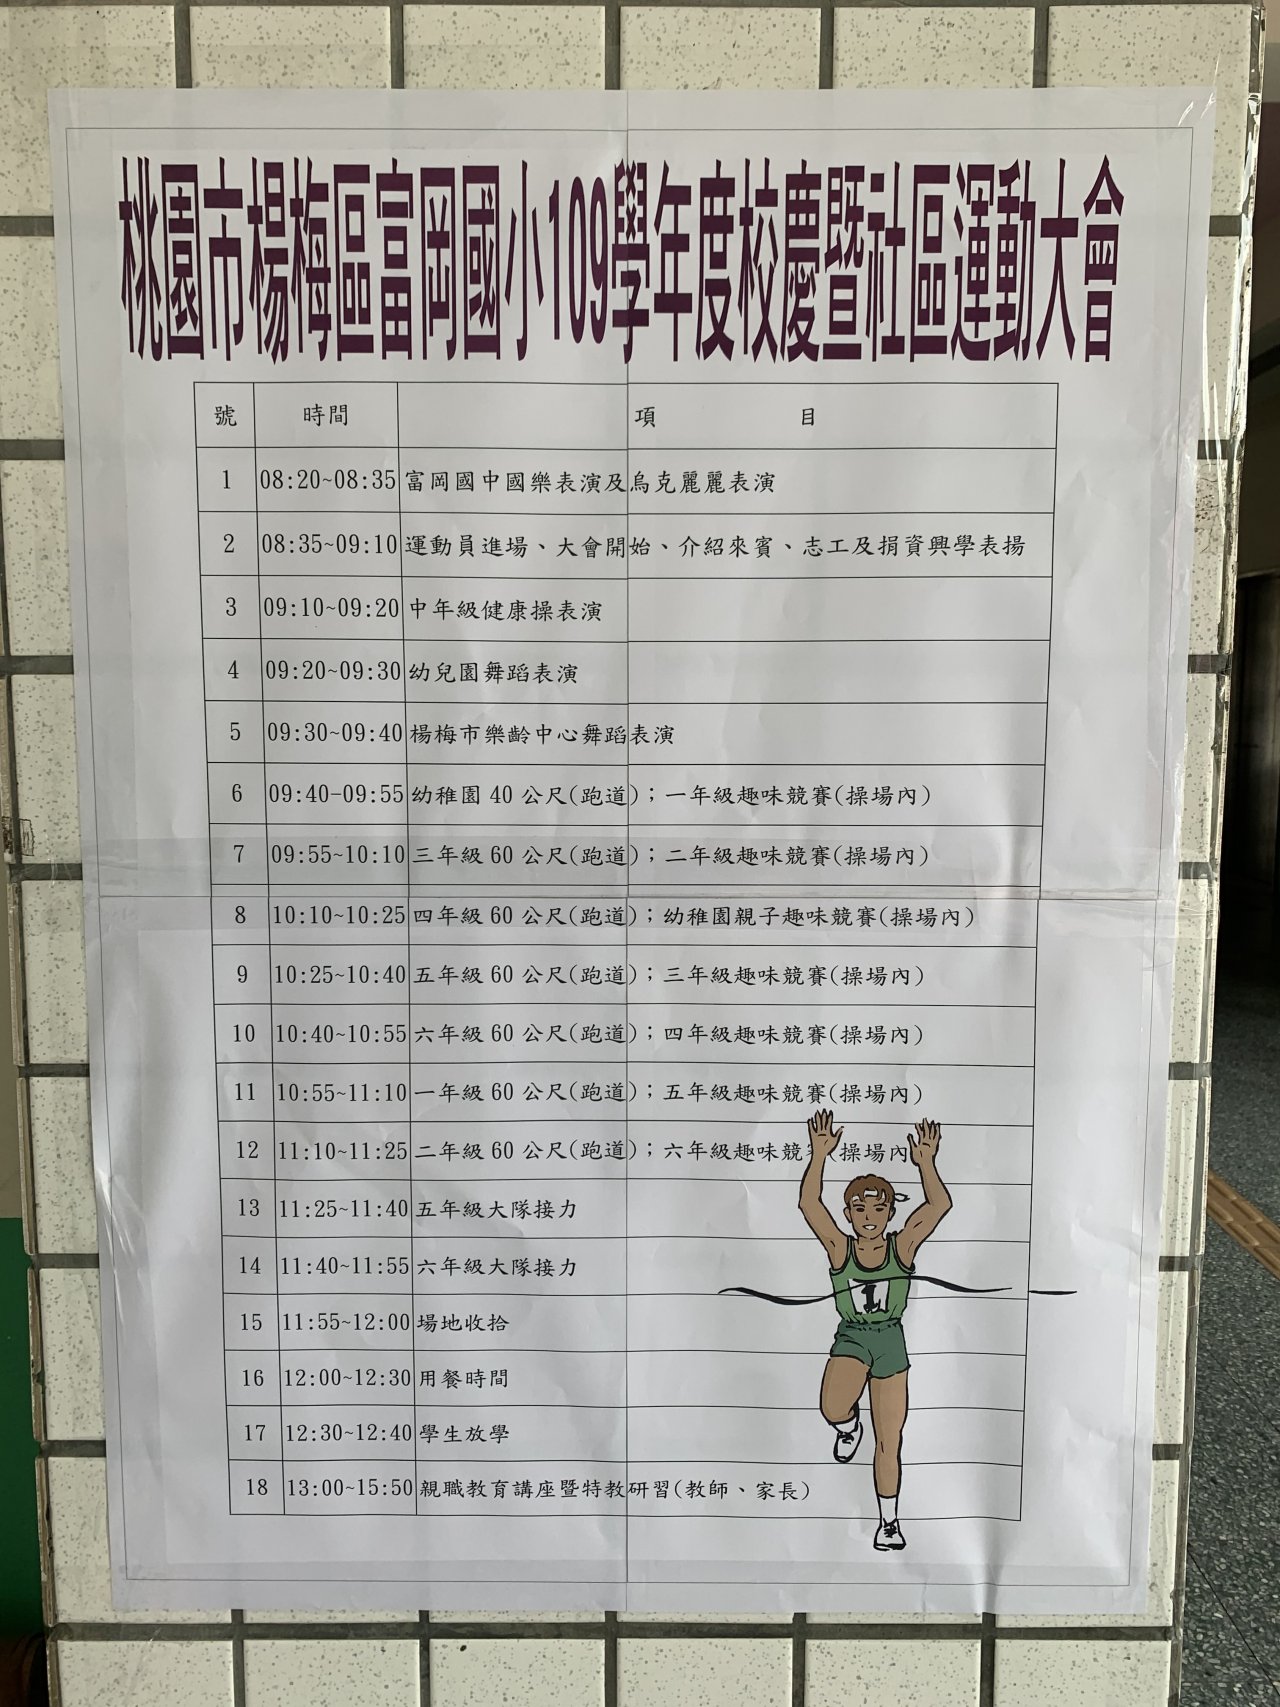 桃園市楊梅區富岡國小109學年度校慶暨社區運動大會
號 時間 項目
1 08:20~08:35 富岡國中國樂表演及烏克麗麗表演
2 08:35~09:10 運動員進場、大會開始、介紹來賓、志工及捐資興學表揚
3 09:10~09:20 中年級健康操表演
4 09:20~09:30 幼兒園舞蹈表演
5 09:30~09:40 楊梅市樂齡中心舞蹈表演
6 09:40-09:55 幼稚園 40 公尺(跑道)；一年級趣味競賽(操場內)
7 09:55~10:10 三年級 60 公尺(跑道)；二年級趣味競賽(操場內)
8 10:10~10:25 四年級 60 公尺(跑道)；幼稚園親子趣味競賽(操場內)
9 10:25~10:40 五年級 60 公尺(跑道)；三年級趣味競賽(操場內)
10 10:40~10:55 六年級 60 公尺(跑道)；四年級趣味競賽(操場內)
11 10:55~11:10 一年級 60 公尺(跑道)；五年級趣味競賽(操場內)
12 11:10~11:25 二年級 60 公尺(跑道)；六年級趣味競賽(操場內
13 11:25~11:40 五年級大隊接力
14 11:40~11:55 六年級大隊接力
15 11:55~12:00 場地收拾
16 12:00~12:30 用餐時間
17 12:30~12:40 學生放學
18 13:00~15:50 親職教育講座暨特教研習(教師、家長)
1